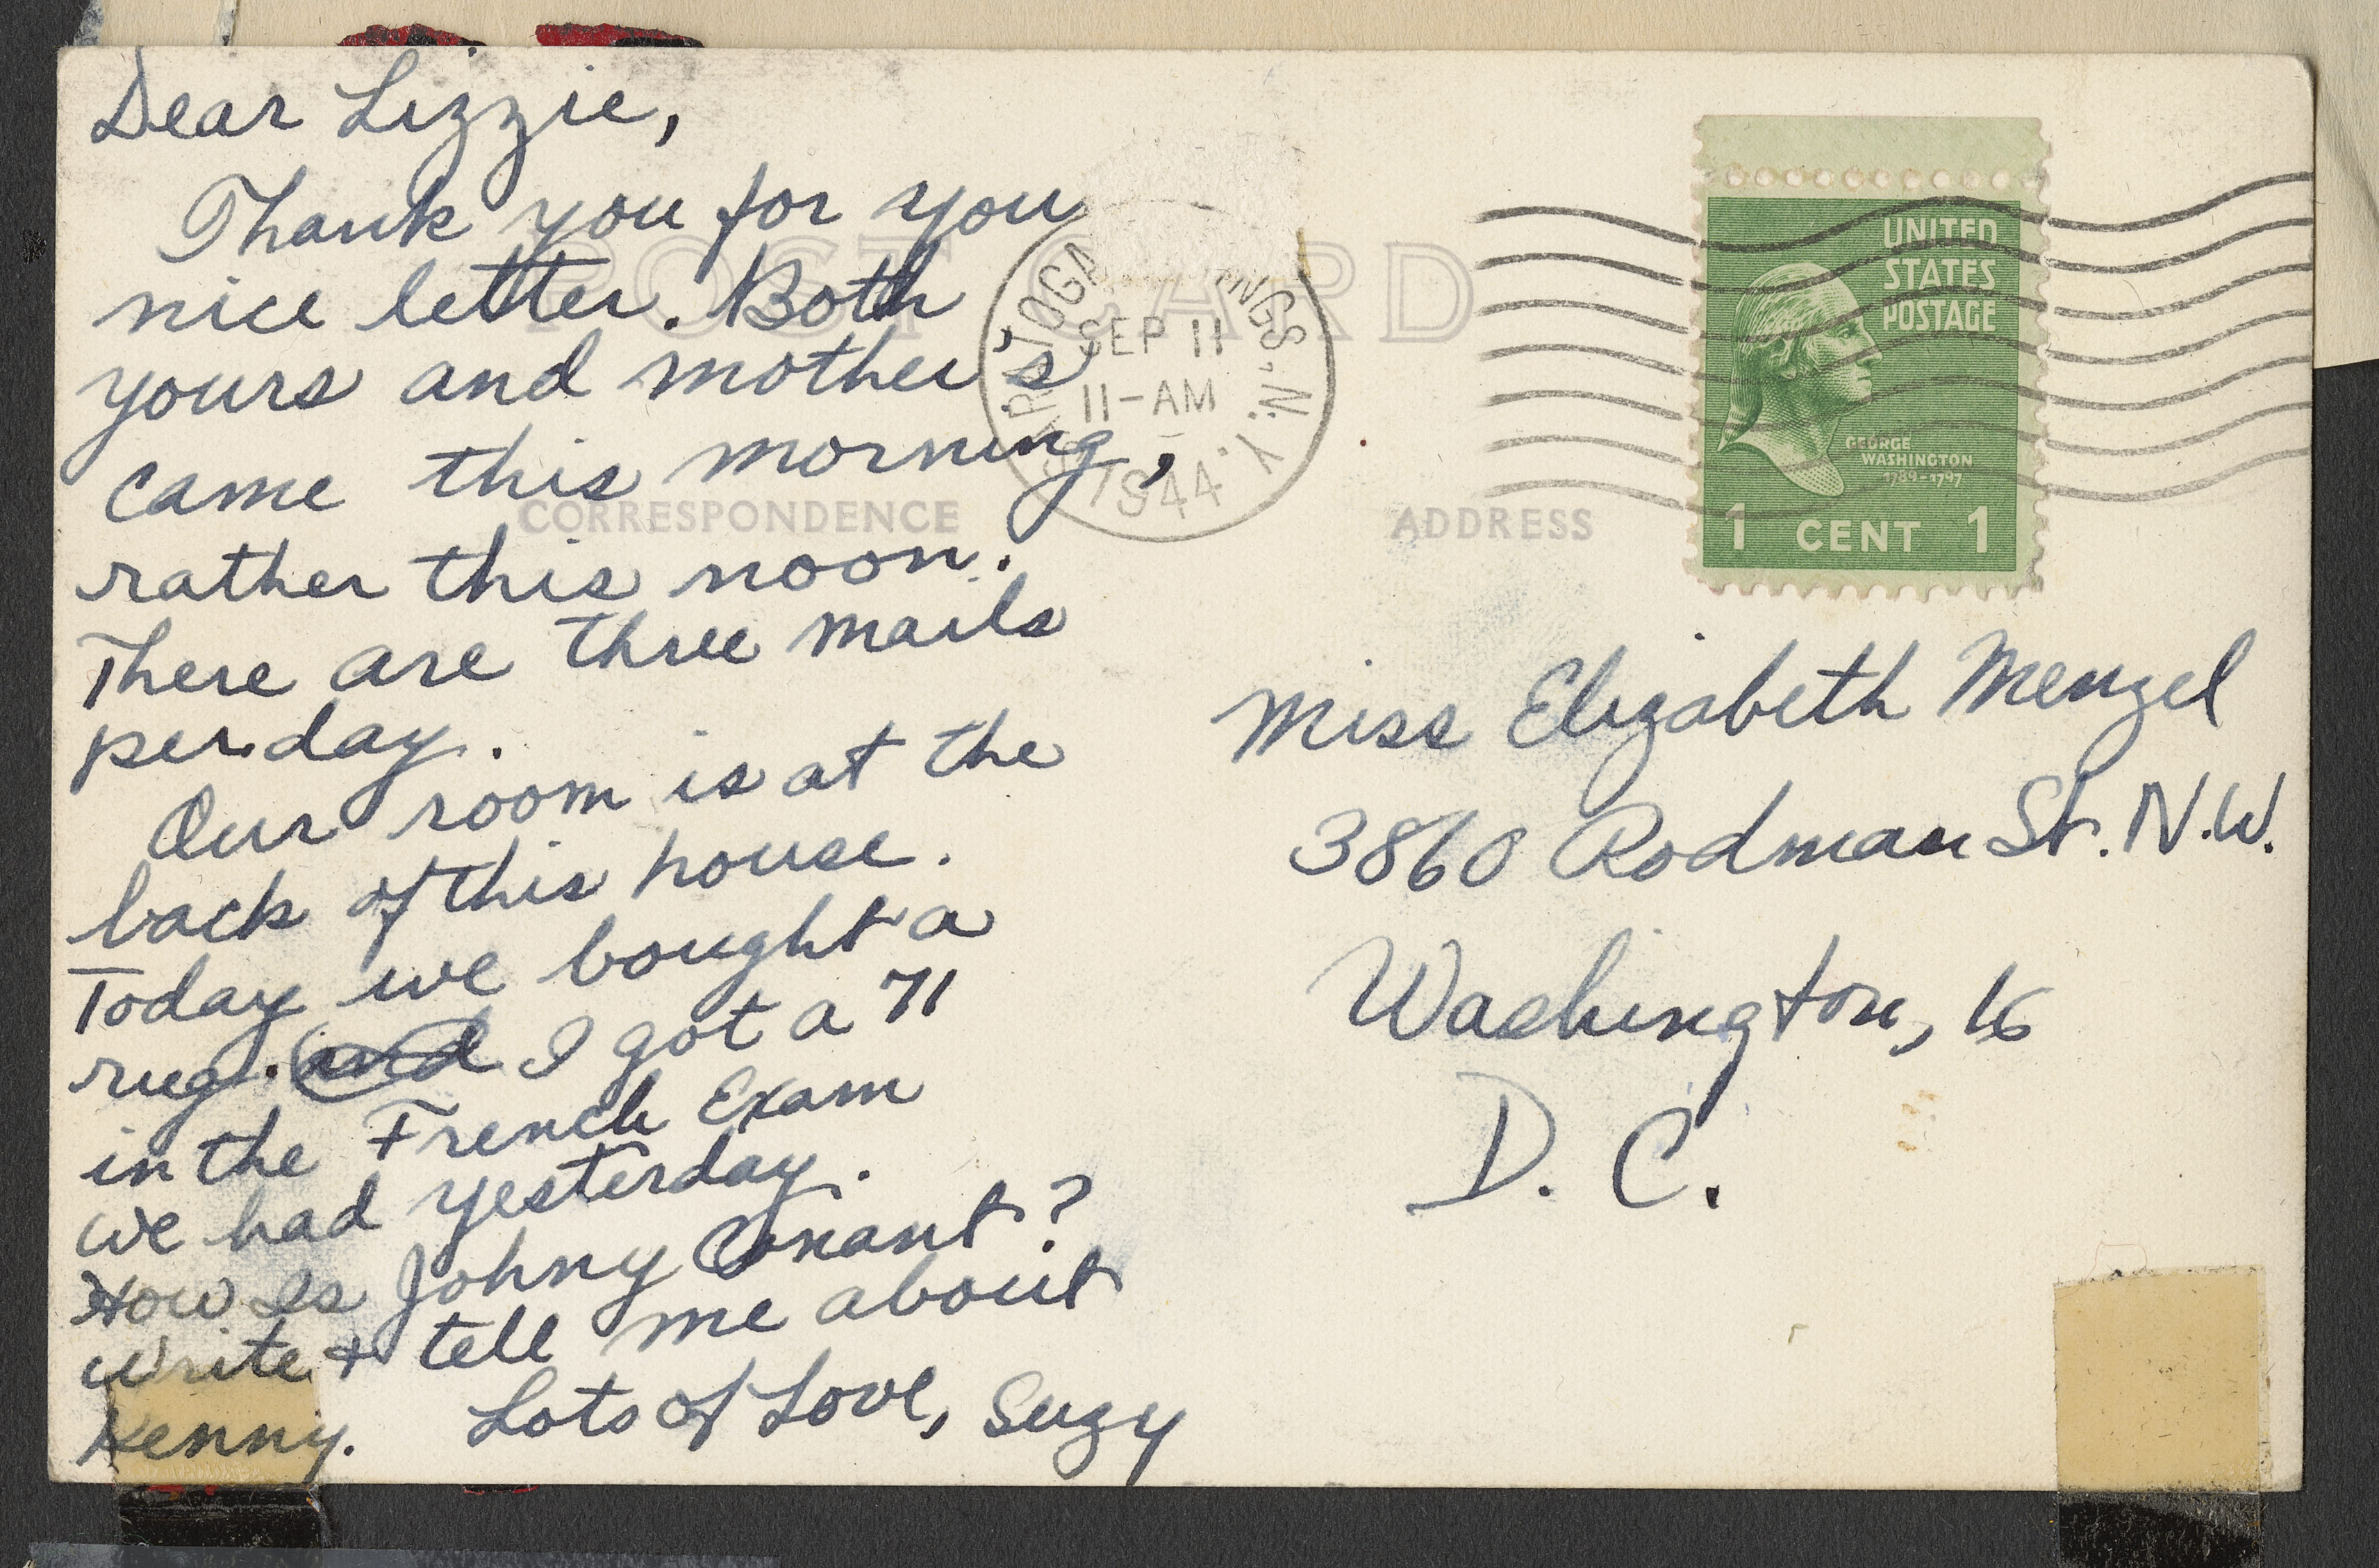 Dear Lizzie,
Thank you for you
nice letter. Both
yours and mother's
came this morning,
rather this noon.
There are three mails
per day.
Our room is at the
back of this house.
Today we bought a
rug. and I got a 71
in the French Exam
we had yesterday.
How Is Johny Conant?
Write & tell me about
Kenny. Lots of Love, Suzy
POST CARD
CORRESPONDENCE
ADDRESS
SEP 11
11-AM
1944
N.Y.
UNITED
STATES
POSTAGE
GEORGE
WASHINGTON
1789-1797
1 CENT 1
Miss Elizabeth Menzel
3860 Rodman St. N.W.
Washington, 16
D. C.